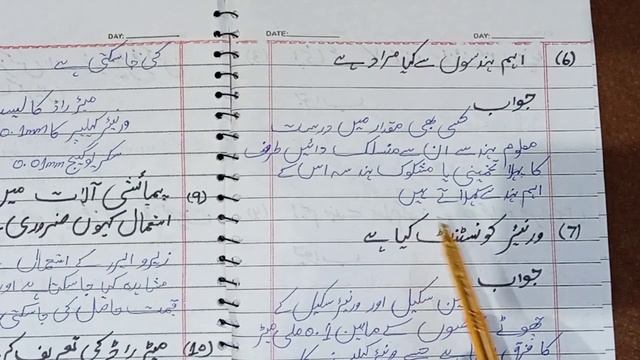 DATE: DAY:
(6) اہم ہندسوں سے کیا مراد ہے
جواب
کسی بھی مقدار میں درست
معلوم ہندسے ان سے منسلک دائیں طرف
کا پہلا تخمینی یا مشکوک ہندسہ اس کے
اہم ہندسے کہلاتے ہیں
(7) ورنیئر کونسٹنٹ کیا ہے
جواب
مین سکیل اور ورنیئر سکیل کے
چھوٹے سے چھوٹے کے مابین 0.1 ملی میٹر
کا فرق
DAY:
کی جا سکتی ہے
میٹر راڈ کا لیسٹ
ورنیئر کیلیپر کا 0.1mm
سکریو گیج 0.01mm
(9) پیمائشی آلات میں
استعمال کیوں ضروری
زیرو ایرر کے استعمال
قیمت حاصل کی جا سکتی
(10) میٹر راڈ کی تعریف